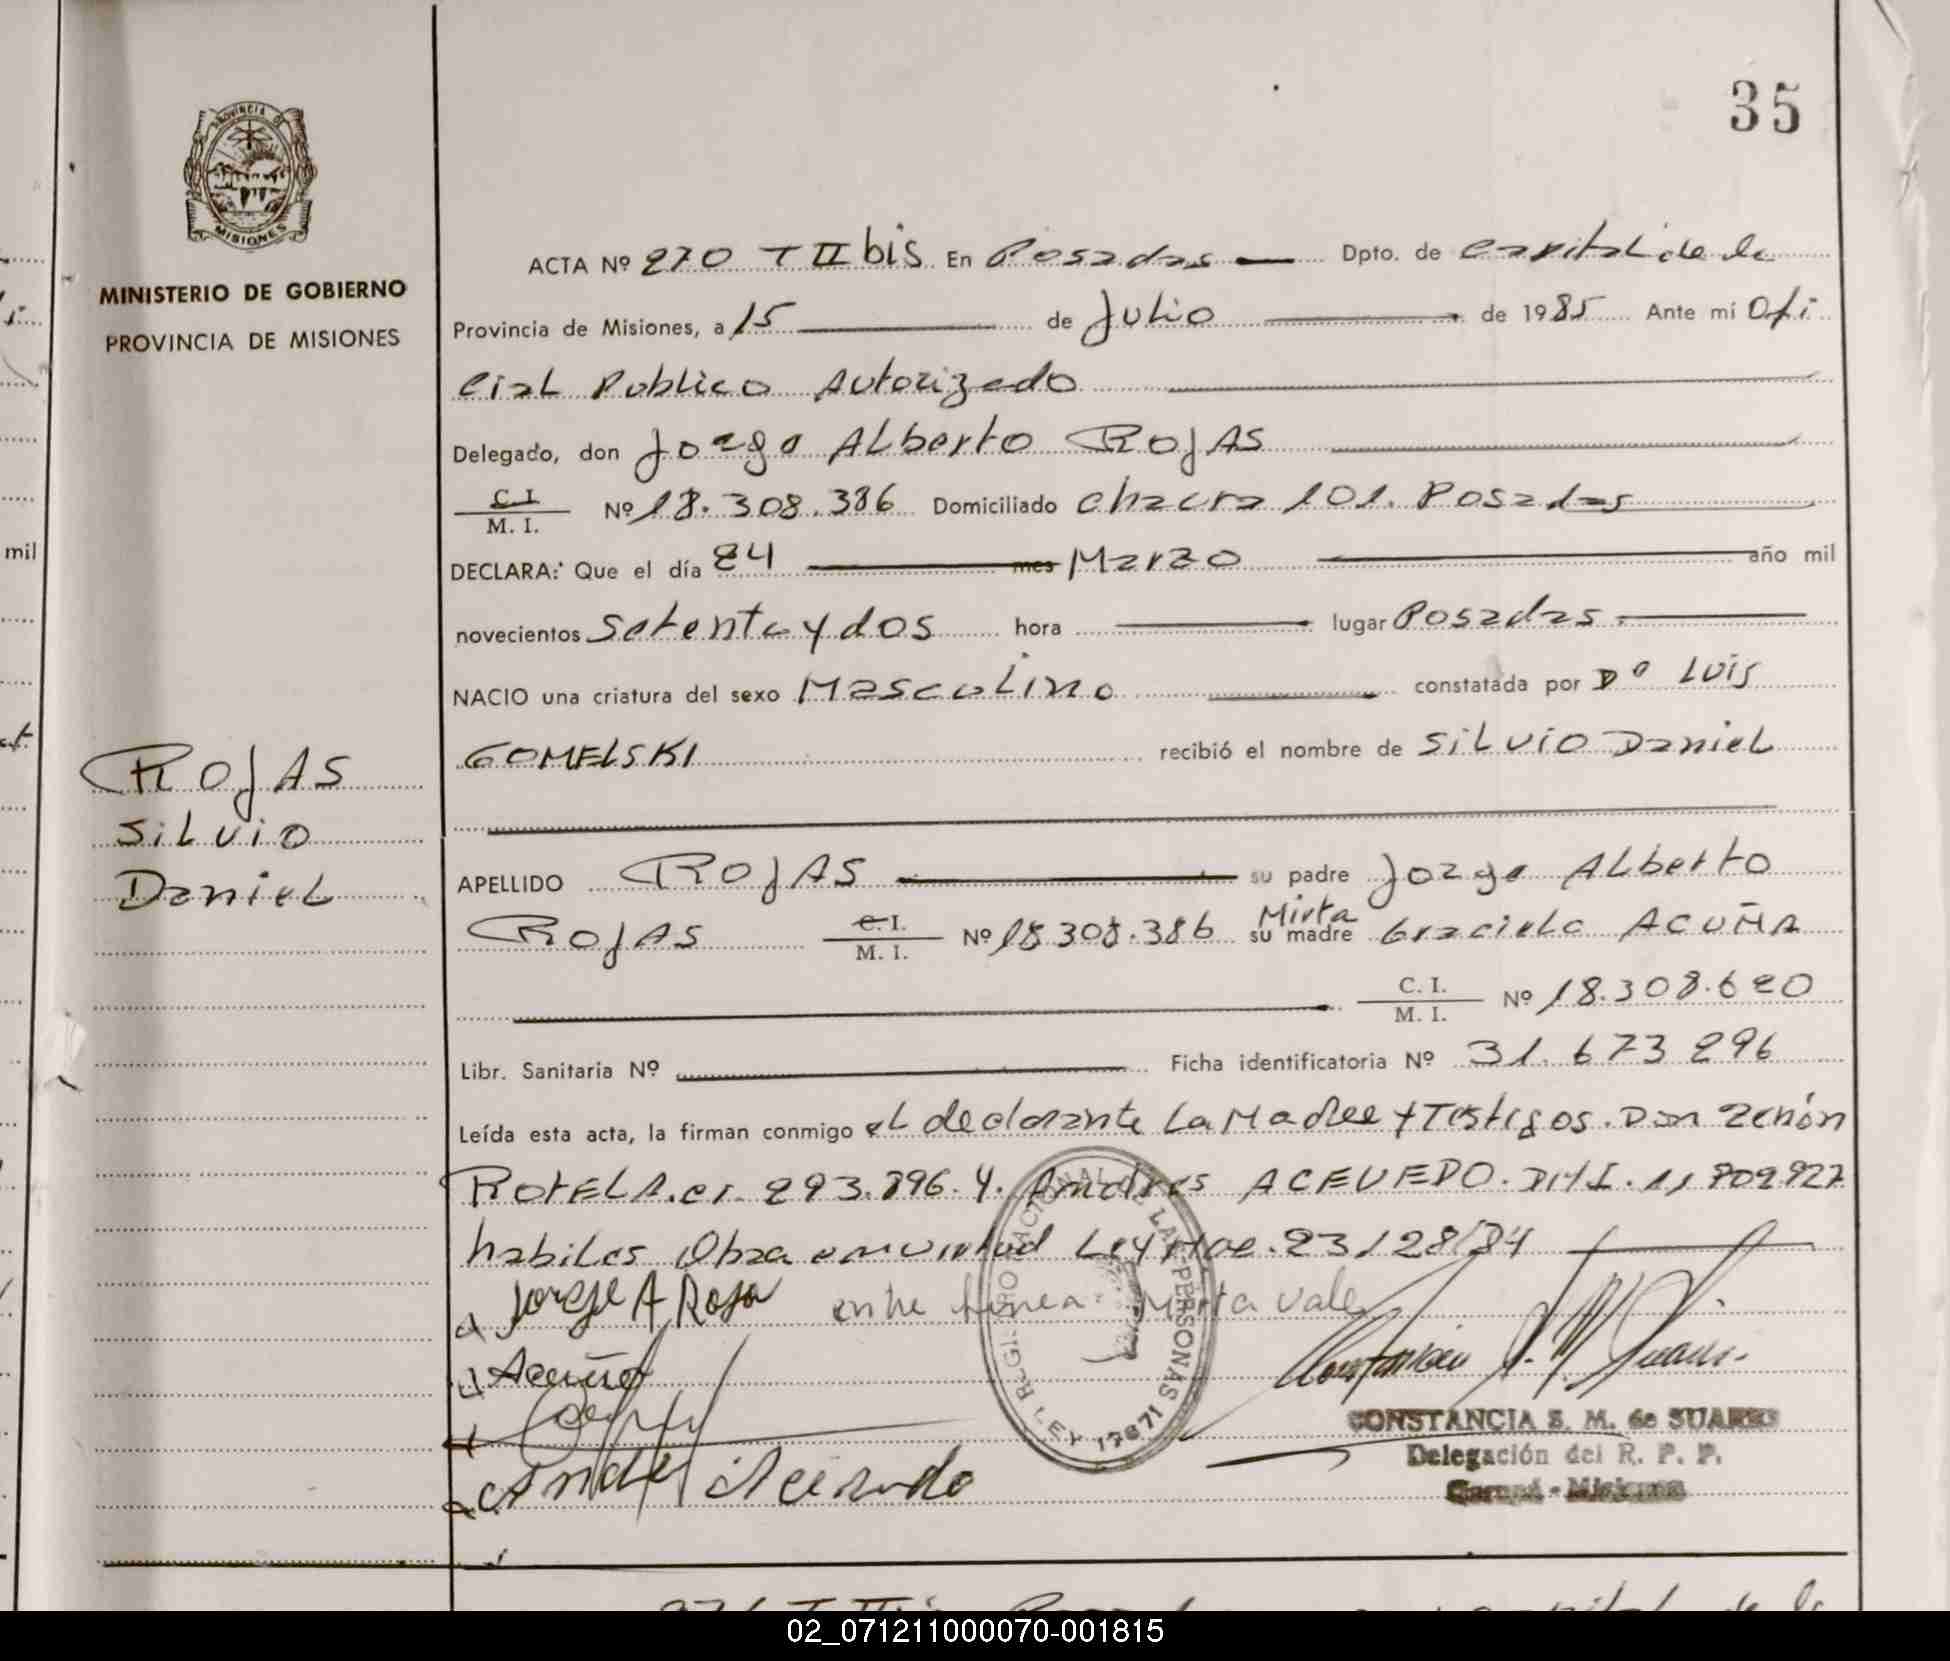 35
PROVINCIA DE
MISIONES
MINISTERIO DE GOBIERNO
PROVINCIA DE MISIONES
ACTA Nº 270 T II bis En Posadas Dpto. de Capital de la
Provincia de Misiones, a 15 de Julio de 1985 Ante mí Ofi
cial Publico Autorizado
Delegado, don Jorge Alberto ROJAS
C.I. / M. I. Nº 18.308.386 Domiciliado Chacra 101. Posadas
DECLARA: Que el día 24 mes Marzo año mil
novecientos Setenta y dos hora lugar Posadas
NACIO una criatura del sexo Masculino constatada por Dº Luis
GOMELSKI recibió el nombre de Silvio Daniel
ROJAS
Silvio
Daniel
APELLIDO ROJAS su padre Jorge Alberto
ROJAS C.I. / M. I. Nº 18.308.386 su madre Mirta Graciela ACUÑA
C. I. / M. I. Nº 18.308.620
Libr. Sanitaria Nº Ficha identificatoria Nº 31.673.296
Leída esta acta, la firman conmigo el declarante La Madre y Testigos. Don Zenón
ROTELA. CI. 293.896. Y. Andres ACEVEDO. DNI. 11.809.927
habiles Obra en virtud Ley Nac. 23128/84
Jorge A Roja entre linea: Mirta vale
Acuña
Andres Acevedo
REGISTRO NACIONAL DE LAS PERSONAS
LEY 17671
CONSTANCIA S. M. de SUAREZ
Delegación del R. P. P.
Garupá - Misiones
mil
02_071211000070-001815